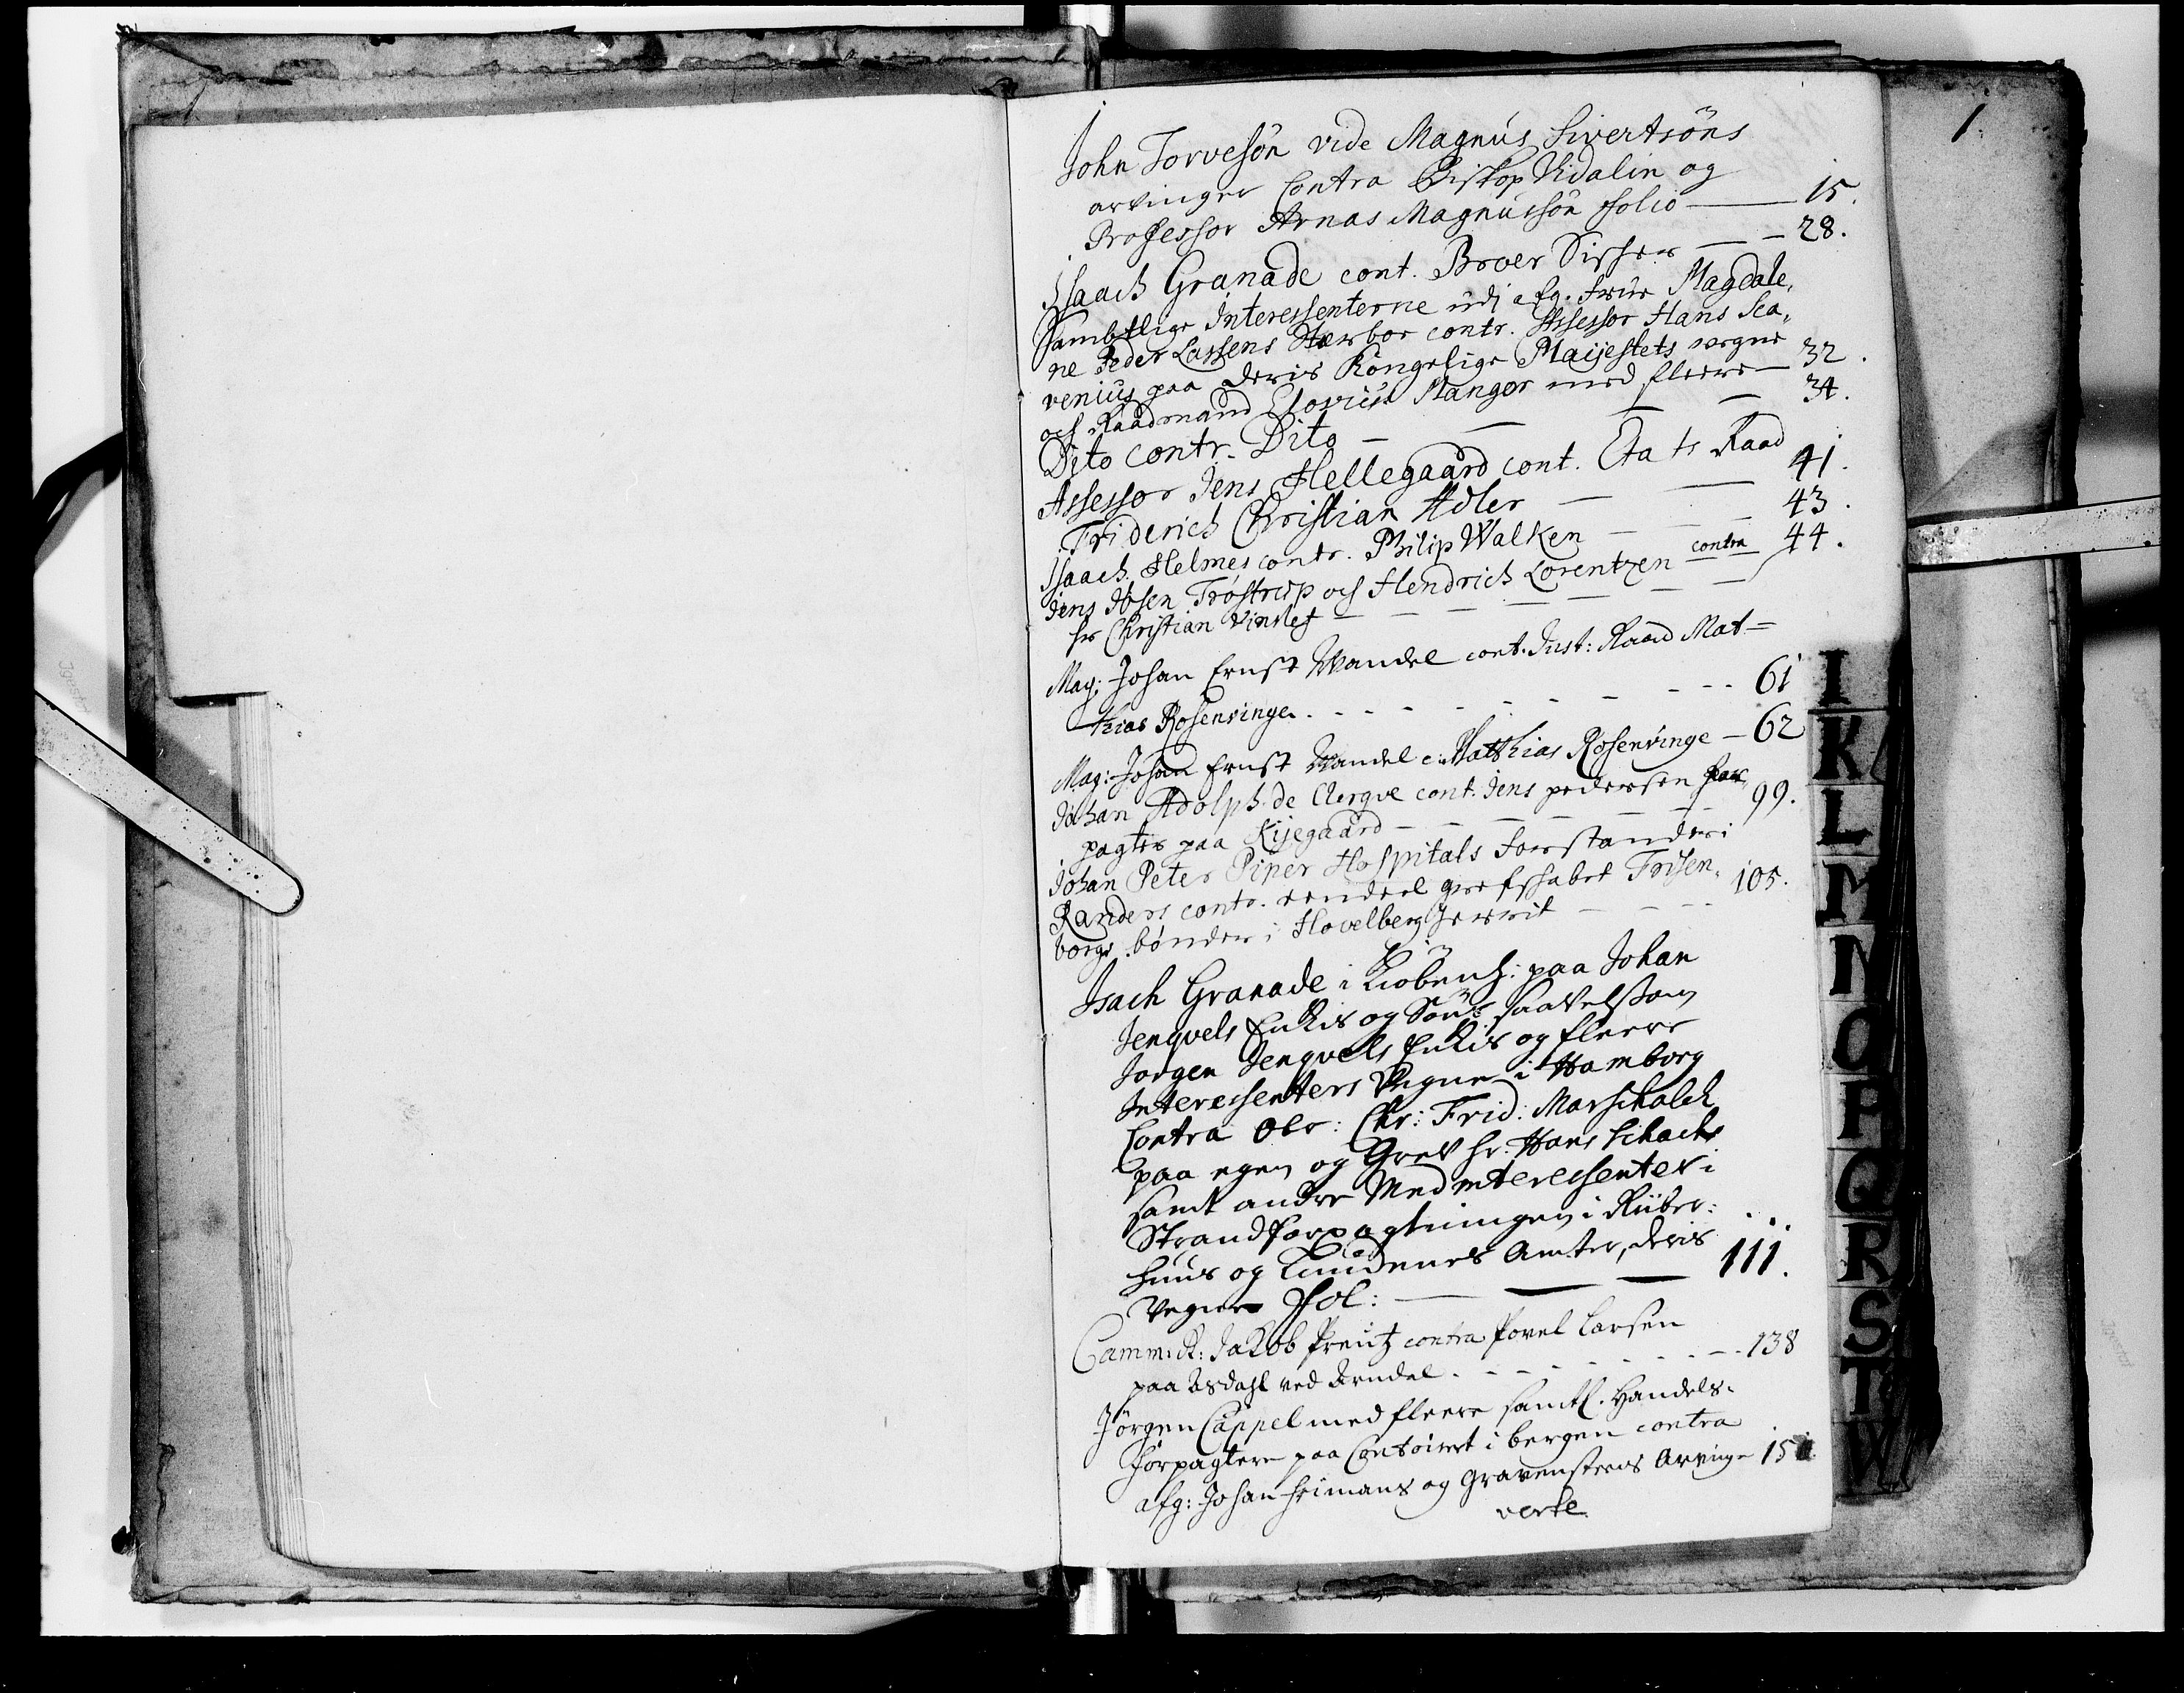 1.
John Torvesøn vide Magnus Sivertsøns
arvinger Contra Biskop Vidalin og
Professor Arnas Magnussøn folio — 15.
Isaach Granade cont. Broer — — 28.
Sambtlige Interessenterne udj afg. Frue Magdale,
ne Peder Lassens Sterboe contr. Assessor Hans Sca,
venius paa Deris Kongelige Maijestets vegne
och Raadmand Slovius Mangor med fleere — 32.
Dito contr. Dito — — — — 34.
Assessor Jens Hellegaard cont. Etats Raad
Friderich Christian Adler — — 41.
Isaach Helmes contr. Philip Walken — — — 43.
Jens Ibsen Trøstrup och Hendrich Lorentzen contra 44.
hr Christian Vinslef — — — — — —
Mag: Johan Ernst Mandel cont. Just: Raad Mat=
thias Rosenvinge . - - - - - - - - - 61
Mag: Johan Ernst Mandel c: Matthias Rosenvinge — 62
Johan Adolph de Clerqve cont. Jens pedersen for,
pagter paa Kijegaard — — — — — — 99.
Johan Peter Piper Hospitals Forstander i
Randers contr. eendeel grefskabet Frisen,
borgs bønder i Hovelberg Herrit — — — 105.
Isach Granade i Kiøbenh: paa Johan
Jenqvels Enkis og Søns saavelsom
Jørgen Jenqvels Enkis og fleere
Interessenters Vegne i Hamborg
Contra Obr: Chr: Frid: Marschalck
paa egen og Grev hr: Hans Schacks
samt andre Medinteressenter i
Strandforpagtningen i Riiber:
huus og Lundenes Amter, deris
Vegne Fol: — — 111.
Camm: R: Jacob Preutz contra Povel Larsen
paa Asdahl ved Arndal . - - - - - - - 138
Jørgen Cappel med fleere samtl. Handels-
forpagtere paa Contoiret i bergen contra
afg: Johan Heimans og Gravensteens Arvinge 151.
verte
I
K
L
M
N
O
P
Q
R
S
T
W